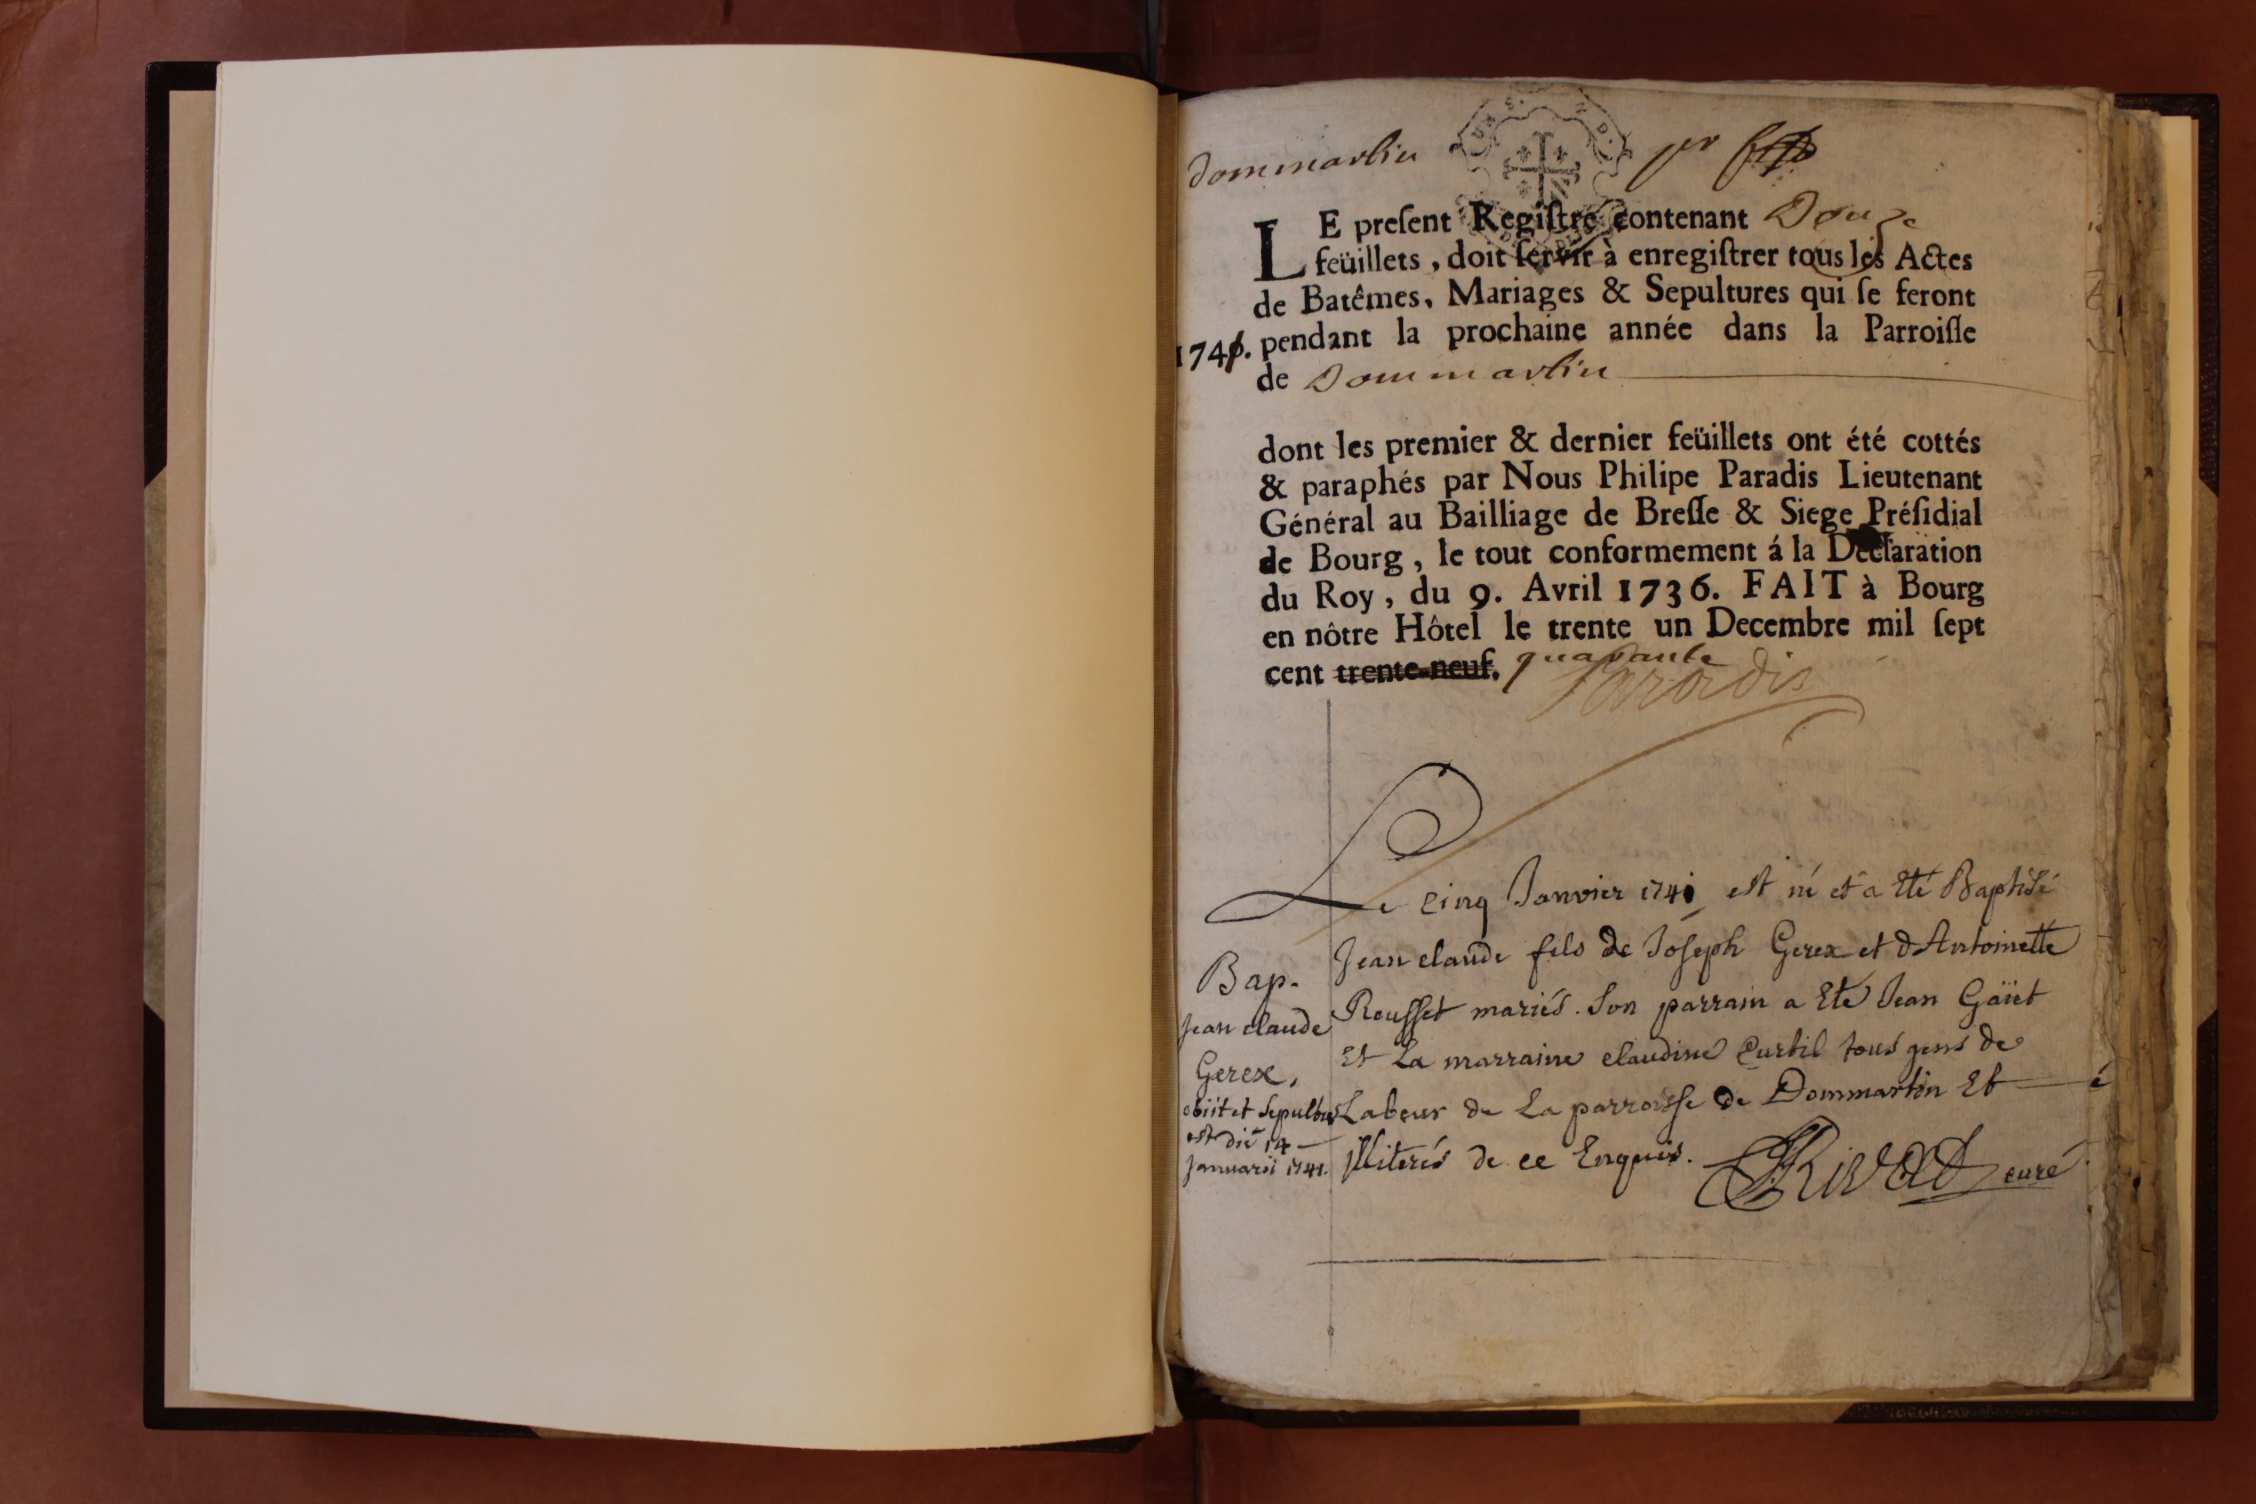 Dommartin
LE preſent Regiſtre contenant Douze
feüillets, doit ſervir à enregiſtrer tous les Actes
de Batêmes, Mariages & Sepultures qui ſe feront
1741. pendant la prochaine année dans la Parroiſſe
de Dommartin
dont les premier & dernier feüillets ont été cottés
& paraphés par Nous Philipe Paradis Lieutenant
Général au Bailliage de Breſſe & Siege Préſidial
de Bourg, le tout conformement á la Declaration
du Roy, du 9. Avril 1736. FAIT à Bourg
en nôtre Hôtel le trente un Decembre mil ſept
cent trente-neuf. quarante
Paradis
Le cinq Janvier 1741 est né et a Eté Baptisé
Jean claude fils de Joseph Gerex et d'Antoinette
Rousset mariés. Son parrain a Eté Jean Gäiet
Et La marraine claudine Curtil tous gens de
Labeur de La parroisse de Dommartin Et
Illiterés de ce Enquis. Rivat curé
Bap.
Jean claude
Gerex,
obiit et Sepultus
est die 14
Januarii 1741.